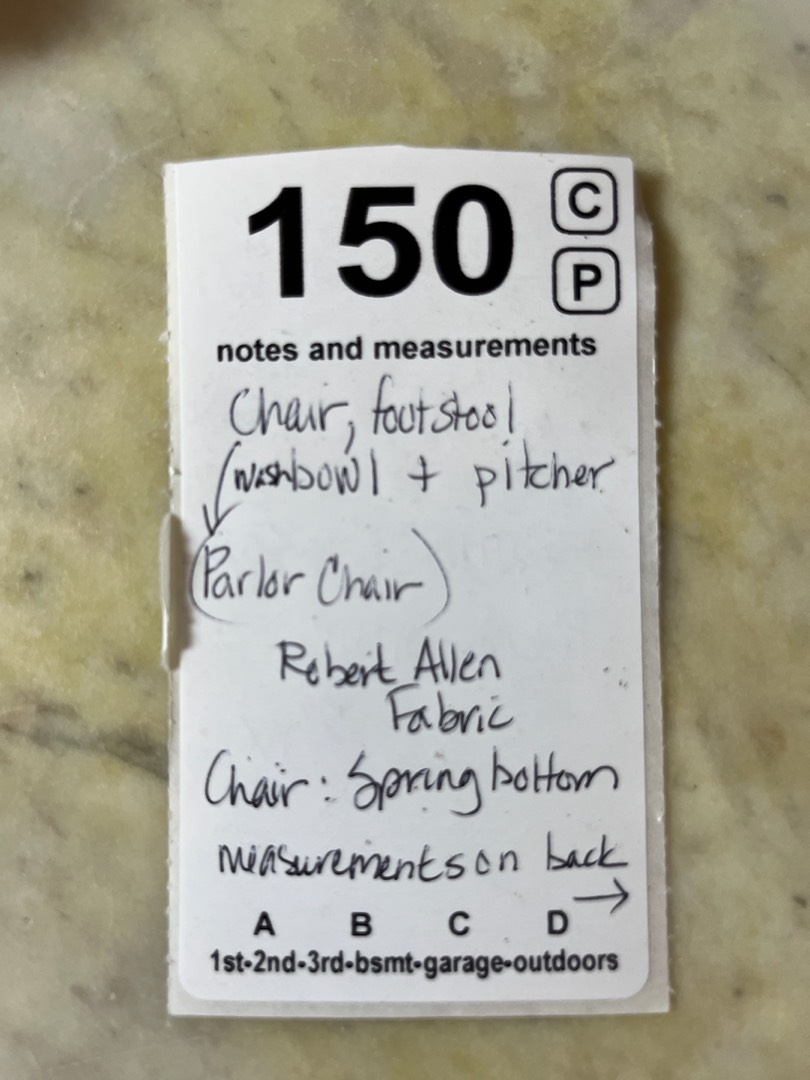 150 C
P
notes and measurements
Chair, footstool
washbowl + pitcher
(Parlor Chair)
Robert Allen
Fabric
Chair: Spring bottom
measurements on back
→
A B C D
1st-2nd-3rd-bsmt-garage-outdoors